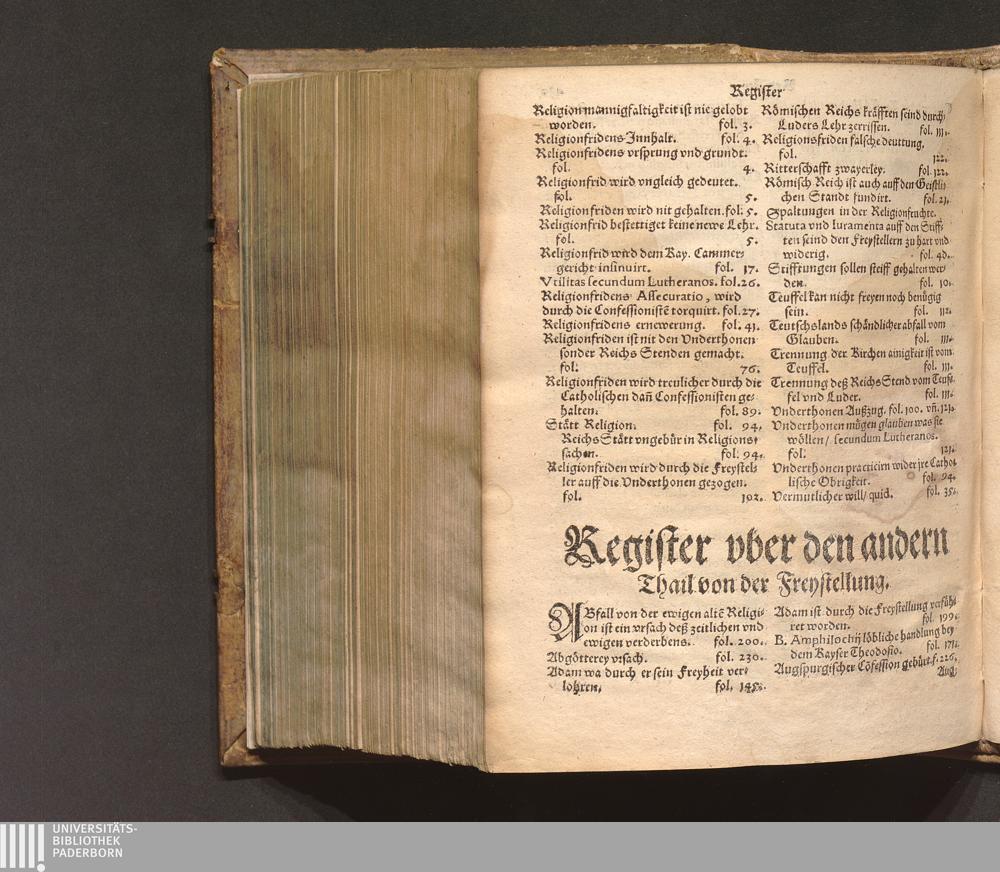 Register
Religion mannigfaltigkeit ist nie gelobt
worden. fol. 3.
Religionfridens Innhalt. fol. 4.
Religionfridens vrsprung vnd grundt.
fol. 4.
Religionfrid wird vngleich gedeutet.
fol. 5.
Religionfriden wird nit gehalten. fol. 5.
Religionfrid bestettiget keine newe Lehr.
fol. 5.
Religionfrid wird dem Kay. Cammer-
gericht insinuirt. fol. 17.
Vtilitas secundum Lutheranos. fol. 26.
Religionfridens Assecuratio, wird
durch die Confessionistē torquirt. fol. 27.
Religionfridens ernewerung. fol. 41.
Religionfriden ist nit den Vnderthonen
sonder Reichs Stenden gemacht.
fol. 76.
Religionfriden wird treulicher durch die
Catholischen dañ Confessionisten ge-
halten. fol. 89.
Stätt Religion. fol. 94.
Reichs Stätt vngebür in Religions-
sachen. fol. 94.
Religionfriden wird durch die Freystel-
ler auff die Vnderthonen gezogen.
fol. 102.
Römischen Reichs kräfften seind durch
Luders Lehr zerrissen. fol. 111.
Religionsfriden falsche deuttung.
fol. 122.
Ritterschafft zwayerley. fol. 122.
Römisch Reich ist auch auff den Geistli-
chen Standt fundirt. fol. 21.
Spaltungen in der Religion
Statuta vnd Iuramenta auff den Stiff-
ten seind den Freystellern zu hart vnd
widerig. fol. 40.
Stifftungen sollen steiff gehalten wer-
den. fol. 10.
Teuffel kan nicht freyen noch benügig
sein. fol. 112.
Teutschlands schändlicher abfall vom
Glauben. fol. 111.
Trennung der Kirchen ainigkeit ist vom
Teuffel. fol. 111.
Trennung deß Reichs Stend vom Teuf-
fel vnd Luder. fol. 111.
Vnderthonen Außzug. fol. 100. vñ. 121.
Vnderthonen mügen glauben was sie
wöllen / secundum Lutheranos.
fol. 121.
Vnderthonen practicirn wider jre Catho-
lische Obrigkeit. fol. 94.
Vermutlicher will / quid. fol. 35.
Register vber den andern
Thail von der Freystellung.
ABfall von der ewigen altē Religi-
on ist ein vrsach deß zeitlichen vnd
ewigen verderbens. fol. 200.
Abgötterey vrsach. fol. 230.
Adam wa durch er sein Freyheit ver-
lohren. fol.
Adam ist durch die Freystellung verfüh-
ret worden. fol. 199.
B. Amphilochij löbliche handlung bey
dem Kayser Theodosio. fol. 171.
Augspurgischer Cōfession gebürt. f. 226.
Aug-
UNIVERSITÄTS-
BIBLIOTHEK
PADERBORN